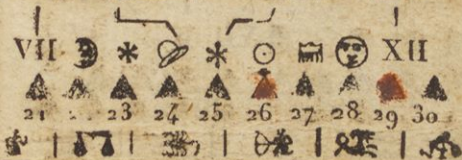 VII XII
21 23 24 25 26 27 28 29 30